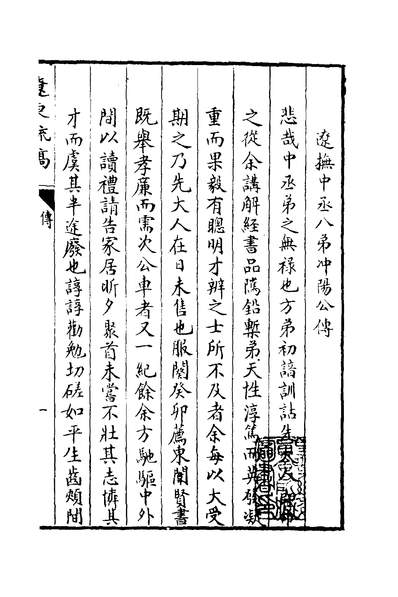 遼撫中丞八弟冲陽公傳
悲哉中丞弟之無禄也方弟初諳訓詁先
之從余講解經書品隲鉛槧弟天性淳篤而英敏凝
重而果毅有聰明才辨之士所不及者余每以大受
期之乃先大人在日未售也服闋癸卯薦東闈賢書
既舉孝廉而需次公車者又一紀餘余方馳驅中外
間以讀禮請告家居昕夕聚首未嘗不壯其志憐其
才而虞其半途廢也諄諄勸勉切磋如平生齒頰間
傳
一